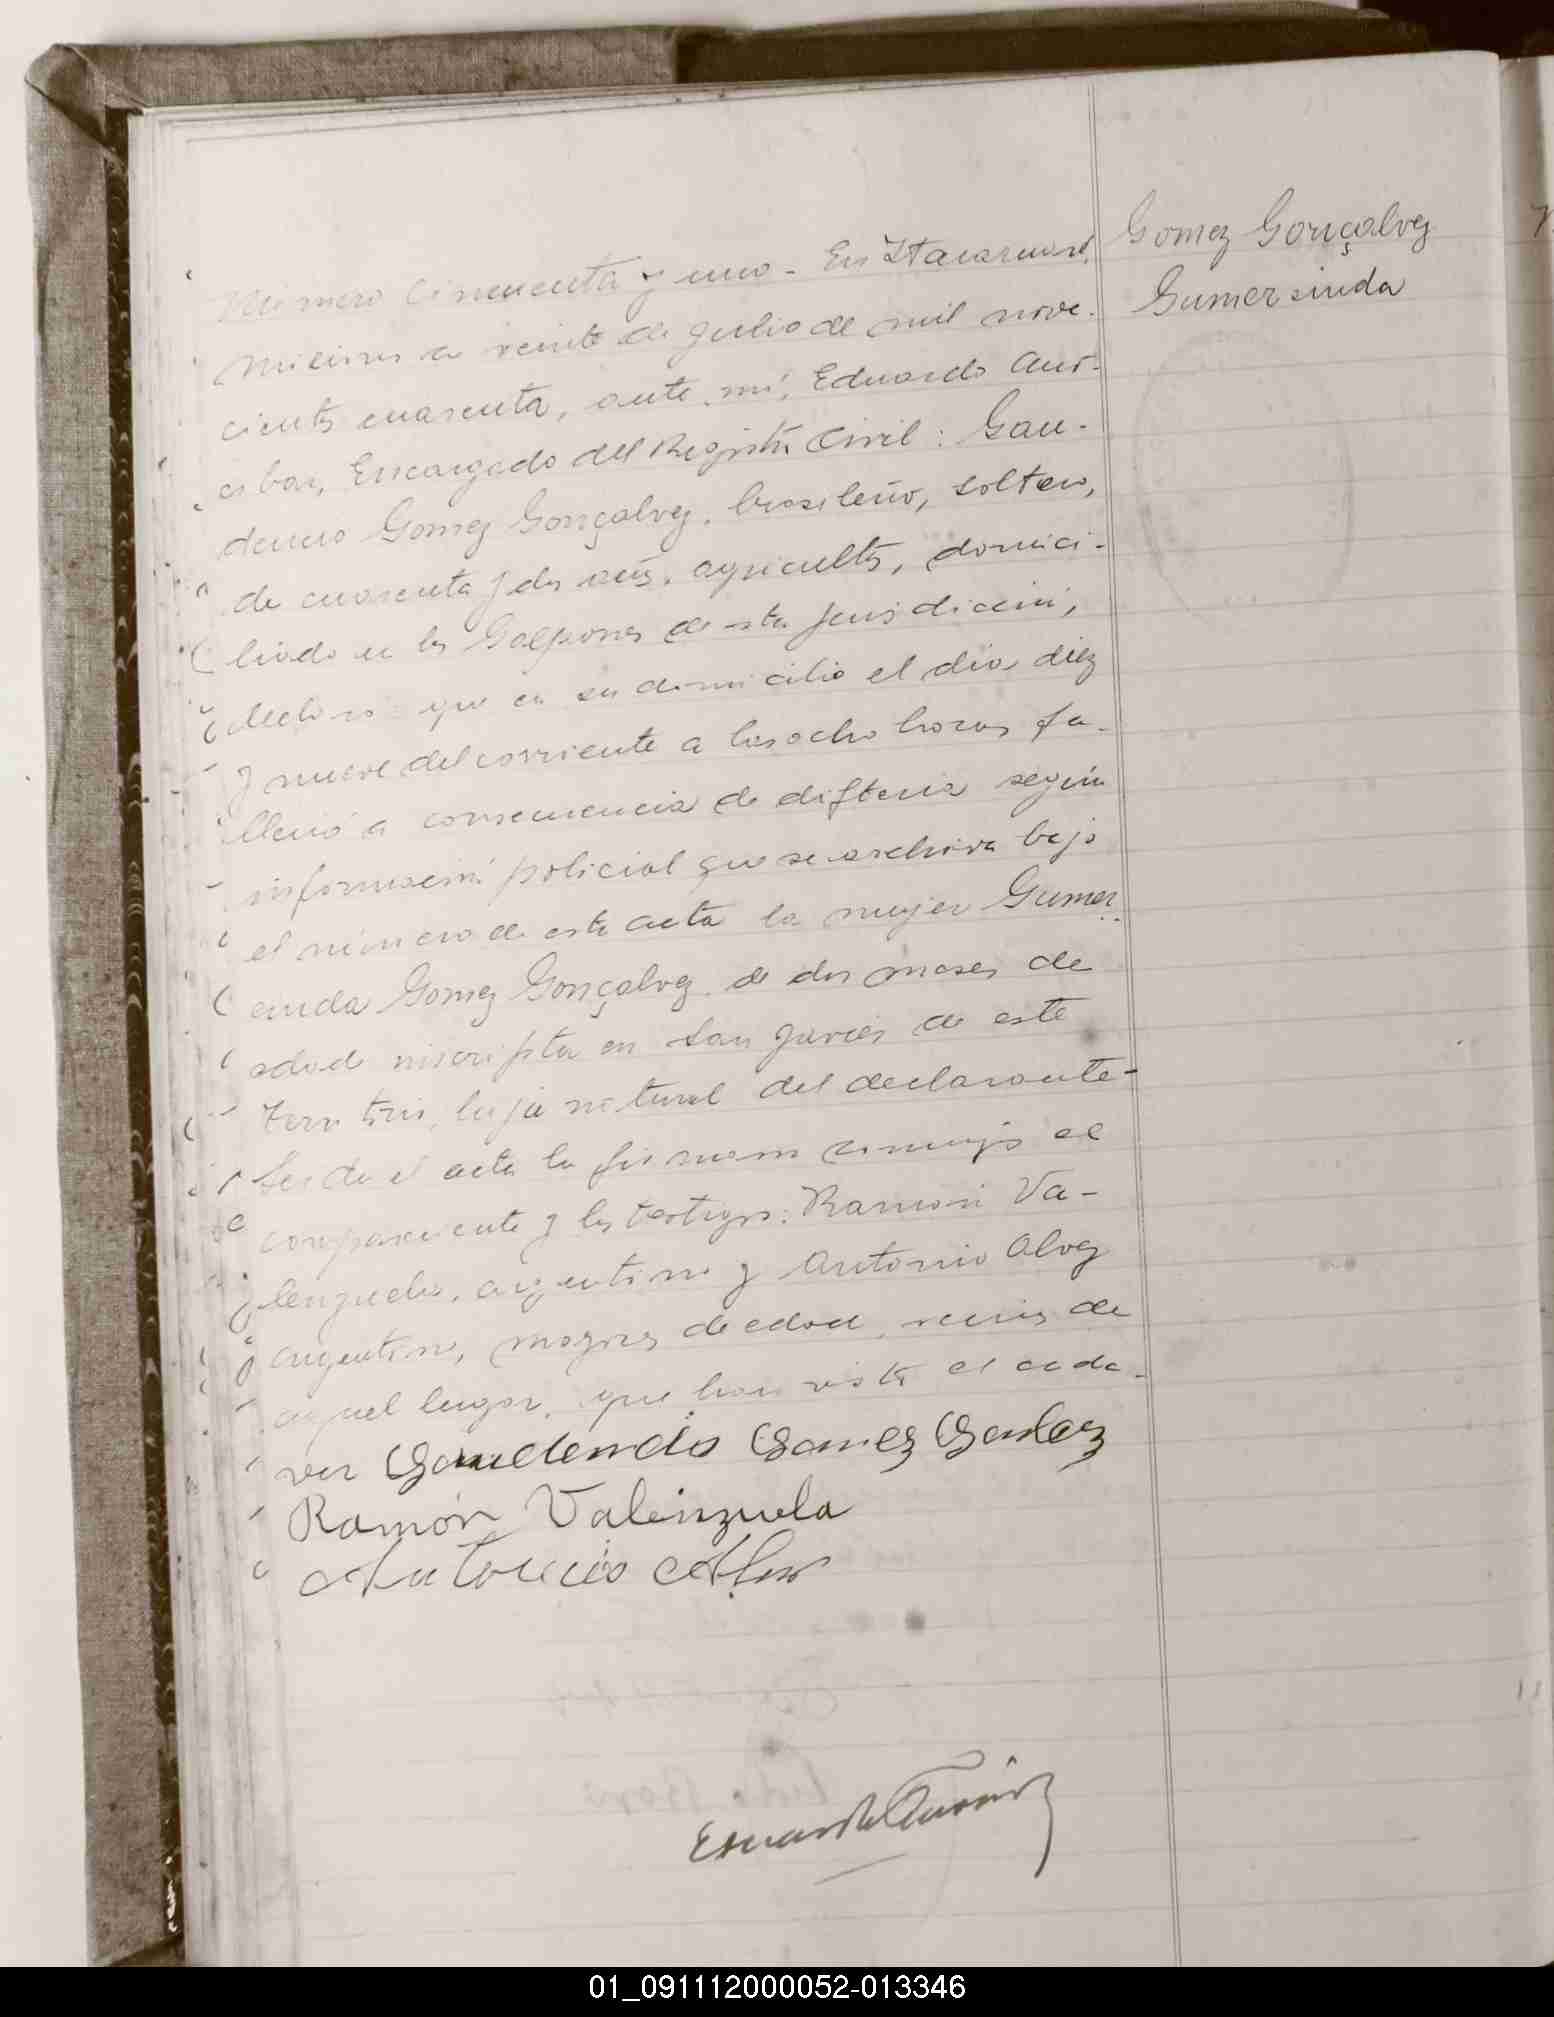 Gomez Gonçalvez
Gumersinda
Número Cincuenta y uno - En Itacaruaré,
Misiones a veinte de Julio de mil nove-
cientos cuarenta, ante mí, Eduardo
Encargado del Registro Civil: Gau-
dencio Gomez Gonçalvez, brasileño, soltero,
de cuarenta y dos años, agricultor, domici-
liado en los Galpones de esta jurisdicción,
declaró: que en su domicilio el día diez
y nueve del corriente a las ocho horas fa-
lleció a consecuencia de difteria según
información policial que se archiva bajo
el número de esta acta la mujer Gumer-
cinda Gomez Gonçalvez, de dos meses de
edad inscripta en San Javier de este
Territorio, hija natural del declarante-
Leída el acta la firman conmigo el
compareciente y los testigos: Ramón Va-
lenzuela, argentino y Antonio Alvez
argentino, mayores de edad, vecinos de
aquel lugar, que han visto el cada-
ver Gaudencio Gomez
Ramón Valenzuela
Antonio
Eduardo
01_091112000052-013346